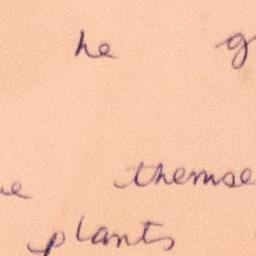 he g
themse
plants